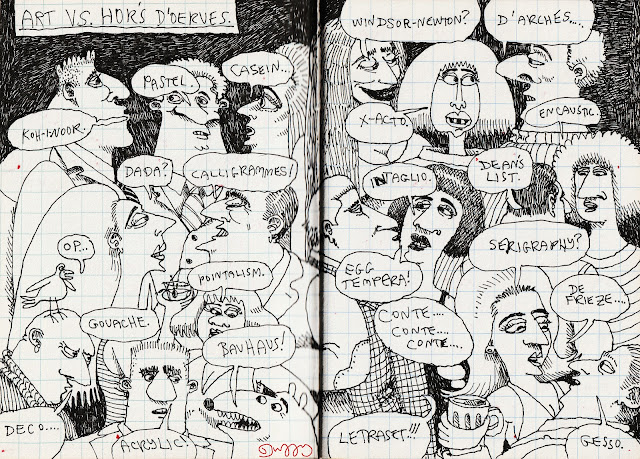 ART VS. HOR'S D'OERVES.
PASTEL.
CASEIN...
KOH-I-NOOR.
DADA?
CALLIGRAMMES!
OP...
POINTALISM.
GOUACHE.
BAUHAUS!
DECO....
ACRYLIC!
WINDSOR-NEWTON?
D'ARCHES....
X-ACTO.
ENCAUSTIC.
INTAGLIO.
DEAN'S
LIST.
SERIGRAPHY?
EGG
TEMPERA!
CONTE....
CONTE....
CONTE....
DE
FRIEZE....
LETRASET!!!
GESSO.